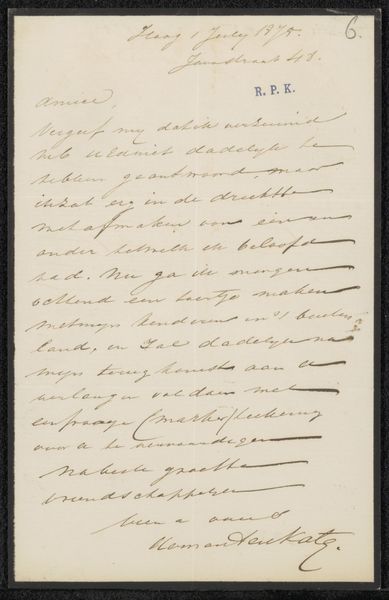 6.
Haag 1 July 1875.
Javastraat 48.
R. P. K.
Amice,
Vergeef my dat ik verzuimd
heb U niet dadelyk te
hebben geantwoord, maar
ik zat erg in de drukte
met afmaken van een en
ander hetwelk ik beloofd
had. Nu ga ik morgen
ochtend een toertje maken
met myn kinderen in 't buiten
land, en zal dadelyk na
myn terugkomst aan U
verlangen voldoen met
een fraaije
teekening
voor U te vervaardigen
Na beste groette
vriendschappelyk
Uw a vriend
Herman ten Kate.